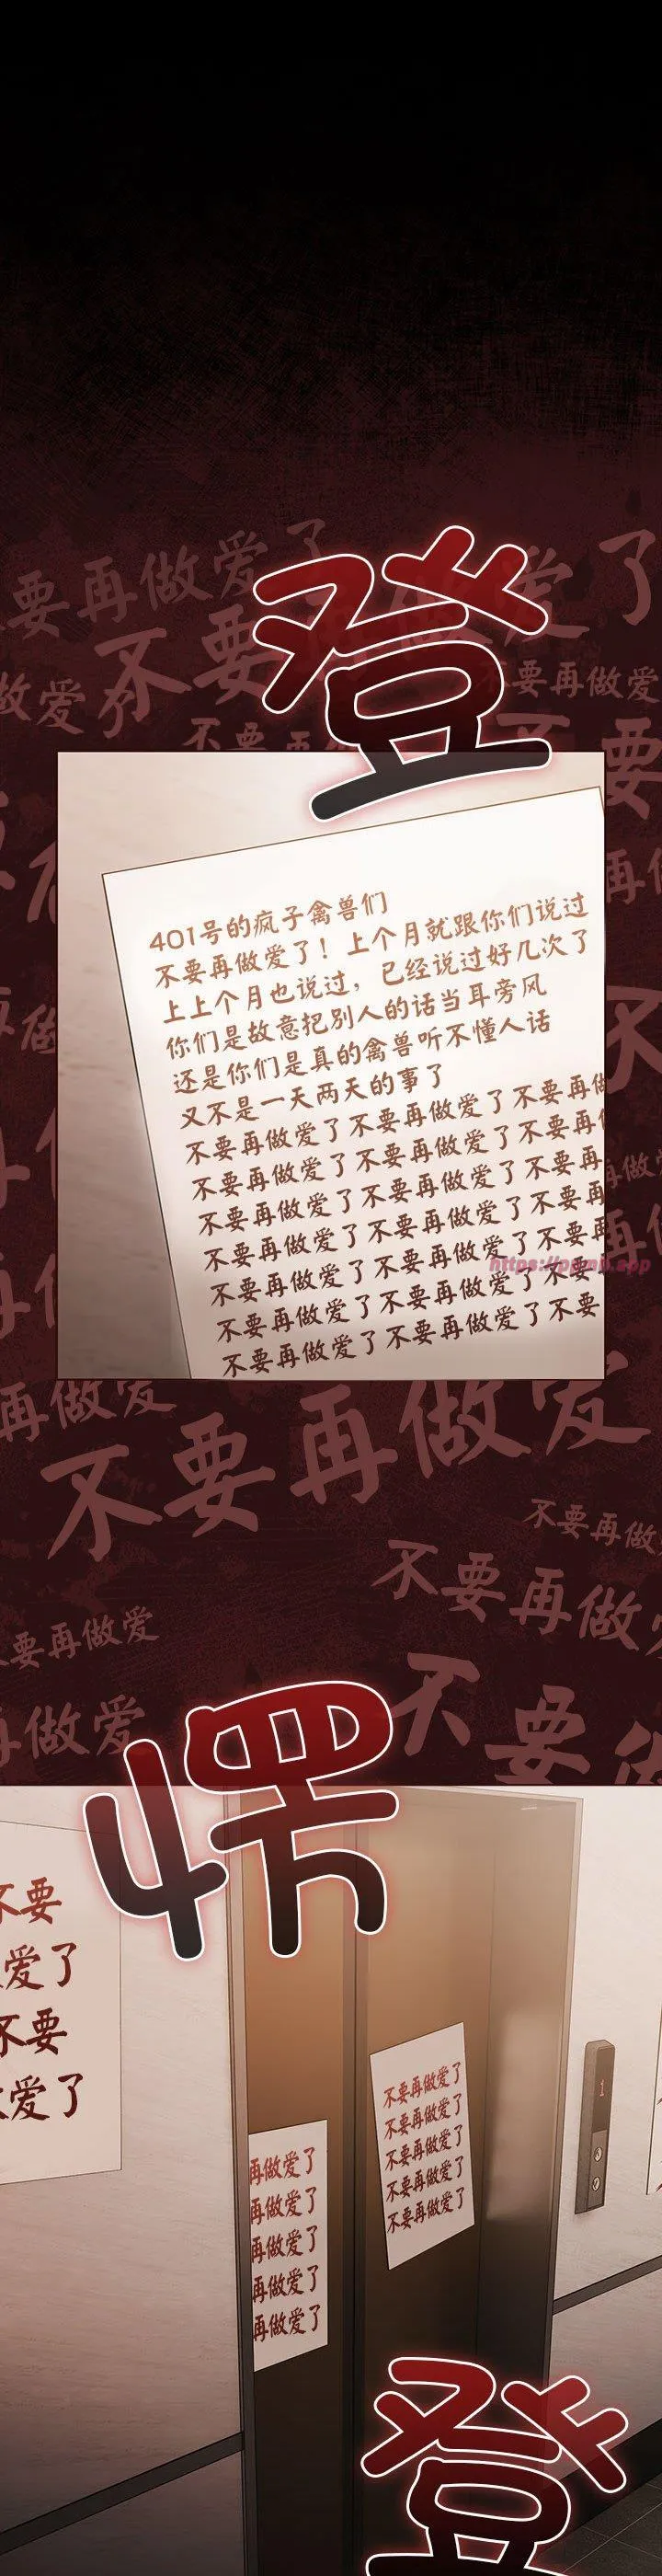 不要再做爱了
不要再做爱了
做爱了
不要再做爱
不要再做爱
登
401号的疯子禽兽们
不要再做爱了！上个月就跟你们说过
上上个月也说过，已经说过好几次了
你们是故意把别人的话当耳旁风
还是你们是真的禽兽听不懂人话
又不是一天两天的事了
不要再做爱了不要再做爱了不要再做
不要再做爱了不要再做爱了不要再
不要再做爱了不要再做爱了不要再
不要再做爱了不要再做爱了不要再
不要再做爱了不要再做爱了不要再
不要再做爱了不要再做爱了不要
不要再做爱了不要再做爱了不要
再做爱
不要再做爱
不要再做
不要再做
不要再做爱
做爱
不要
愣
不要
爱了
不要
爱了
不要再做爱了
不要再做爱了
不要再做爱了
不要再做爱了
不要再做爱了
再做爱了
再做爱了
再做爱了
再做爱了
再做爱了
1
登